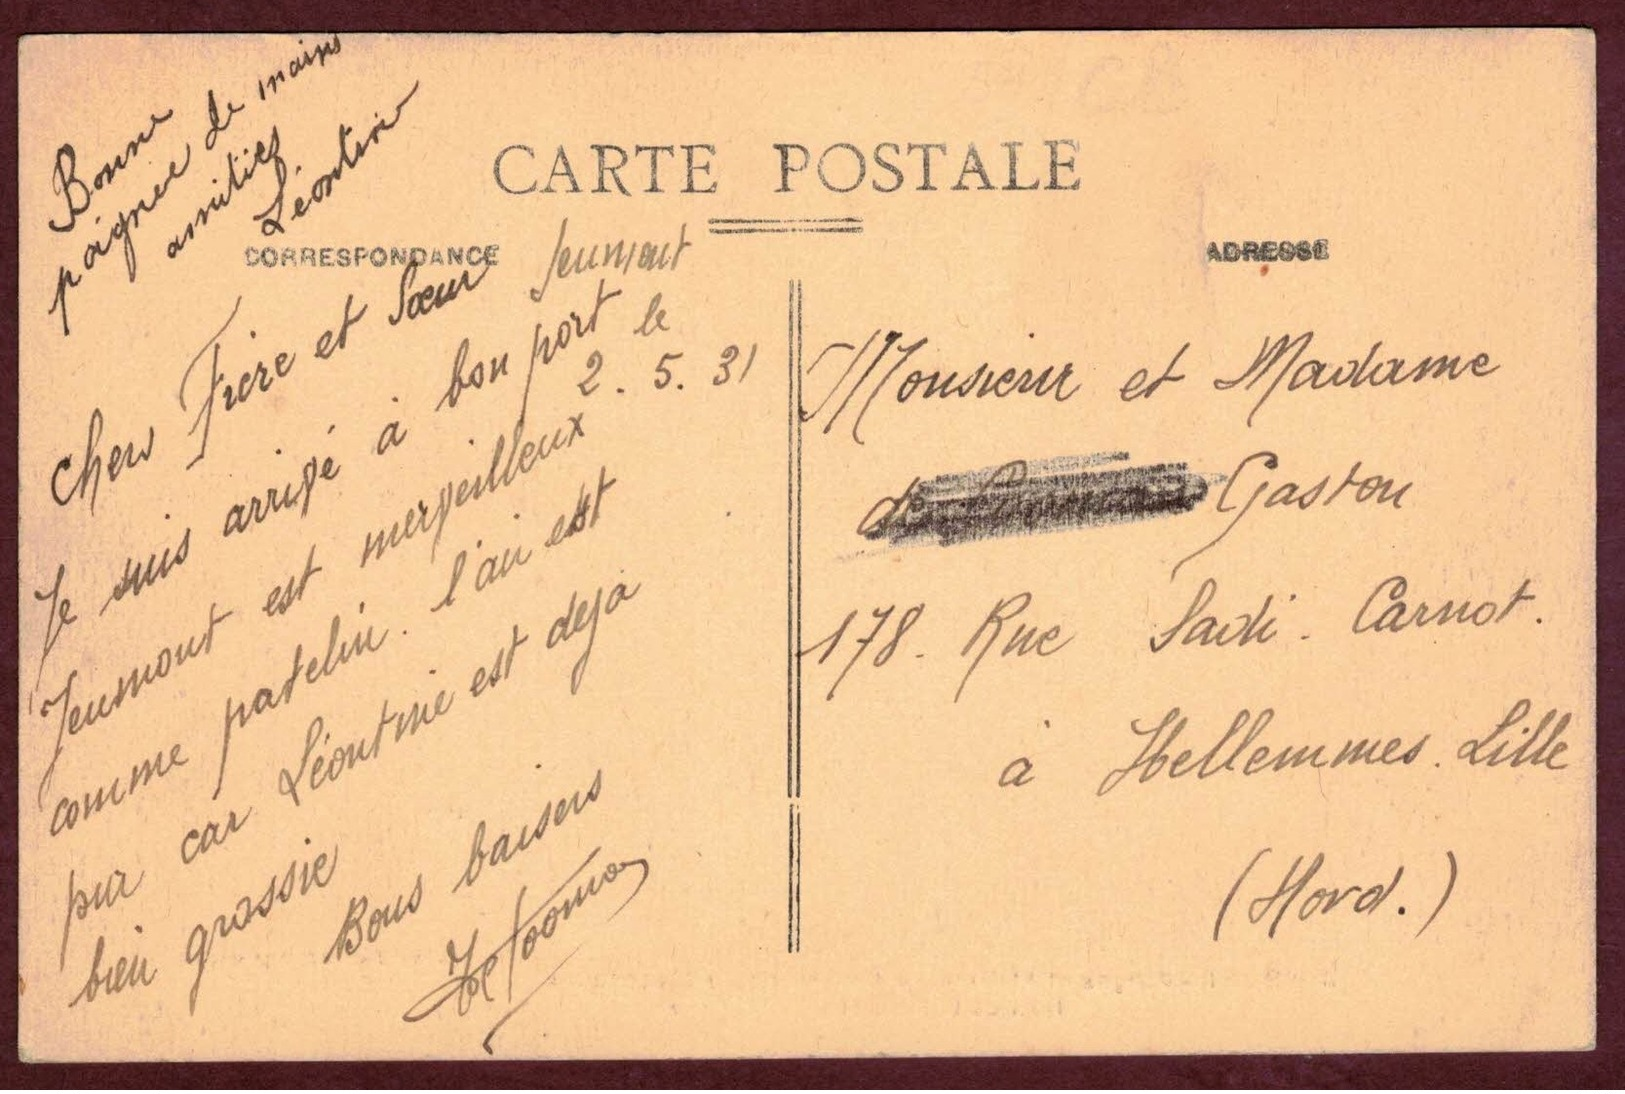 CARTE POSTALE
CORRESPONDANCE
ADRESSE
Bonne
poignée de mains
amitiés
Léontine
Jeumont
le
2. 5. 31
Chers Frère et Sœur
Je suis arrivé à bon port
Jeumont est merveilleux
comme patelin. l'air est
pur car Léontine est deja
bien grossie
Bons baisers
Monsieur et Madame
de Gaston
178. Rue Sadi. Carnot.
à Hellemmes. Lille
(Nord.)